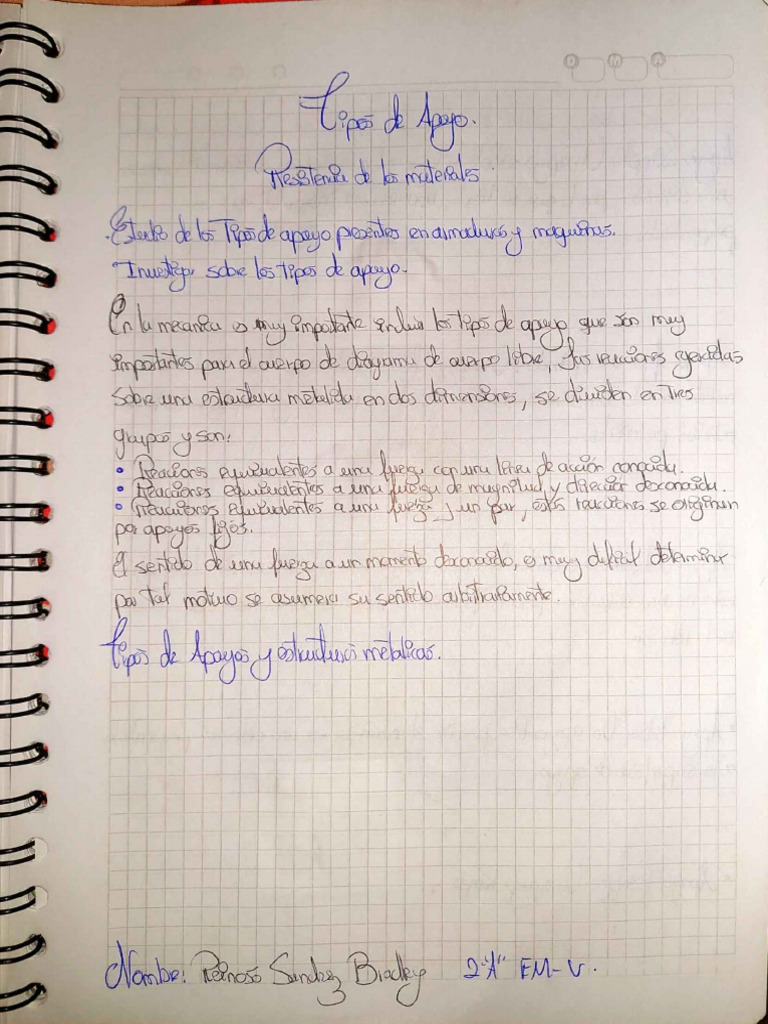 D M A
Tipos de Apoyo.
Resistencia de los materiales
.Estudio de los Tipos de apoyo presentes en armaduras y maquinas.
Investigar sobre los tipos de apoyo.
En la mecanica es muy importante incluir los tipos de apoyo que son muy
importantes para el cuerpo de diagrama de cuerpo libre, sus reacciones ejercidas
sobre una estructura metalica en dos dimensiones, se dividen en Tres
grupos y son:
• Reaciones equivalentes a una fuerza con una linea de acción conocida.
• Reaciones equivalentes a una fuerza de magnitud y direccion desconocida.
• Reacciones equivalentes a una fuerza y un par, estas reacciones se originan
por apoyos fijos.
El sentido de una fuerza a un momento desconocido, es muy dificil determinar
por tal motivo se asumera su sentido arbitrariamente.
Tipos de Apoyos y estructuras metalicas.
Nombre: Reinoso Sanchez Bradley 2"A" EM-V.